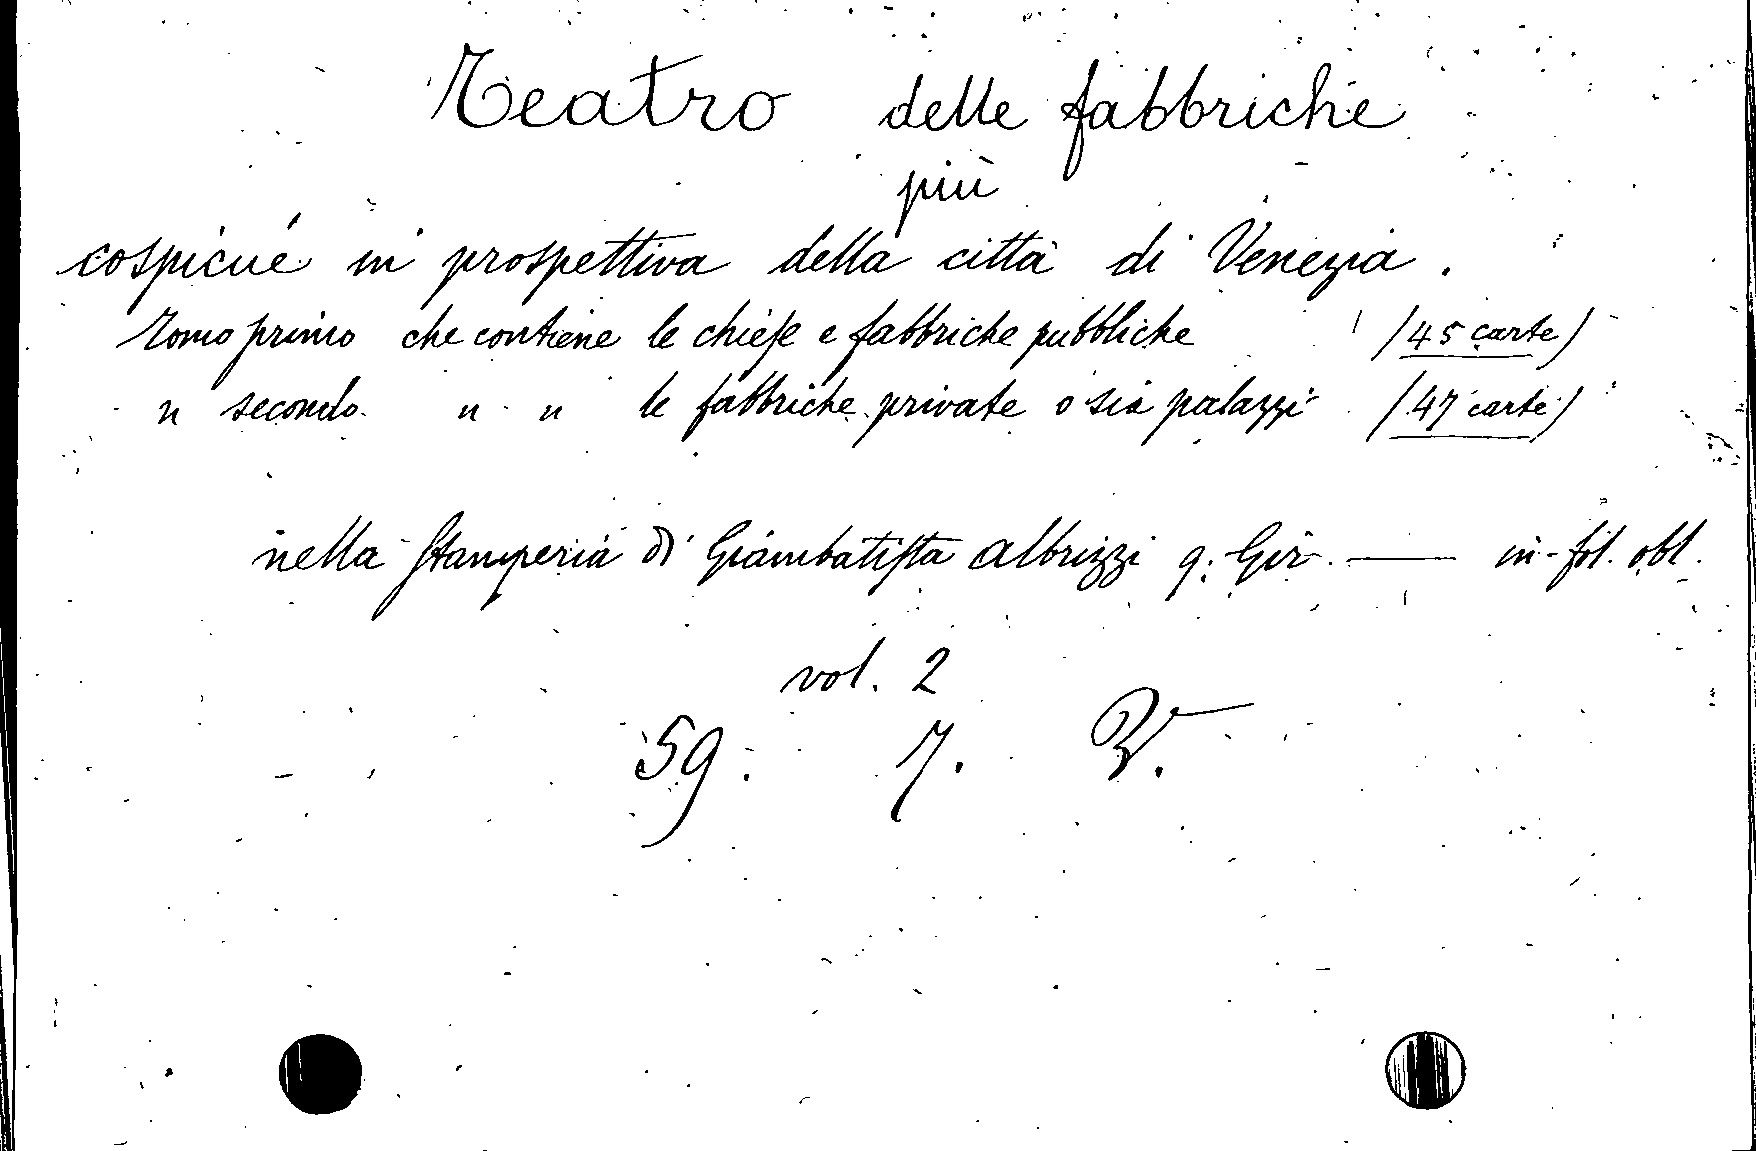 Teatro delle fabbriche
più
cospicue in prospettiva della città di Venezia.
Tomo primo che contiene le chiese e fabbriche pubbliche (45 carte)
" secondo " " le fabbriche private o sia palazzi (47 carte)
nella Stamperia di Giambatista Albrizzi q: Gir. — in-fol. obl.
vol. 2
59. 7.